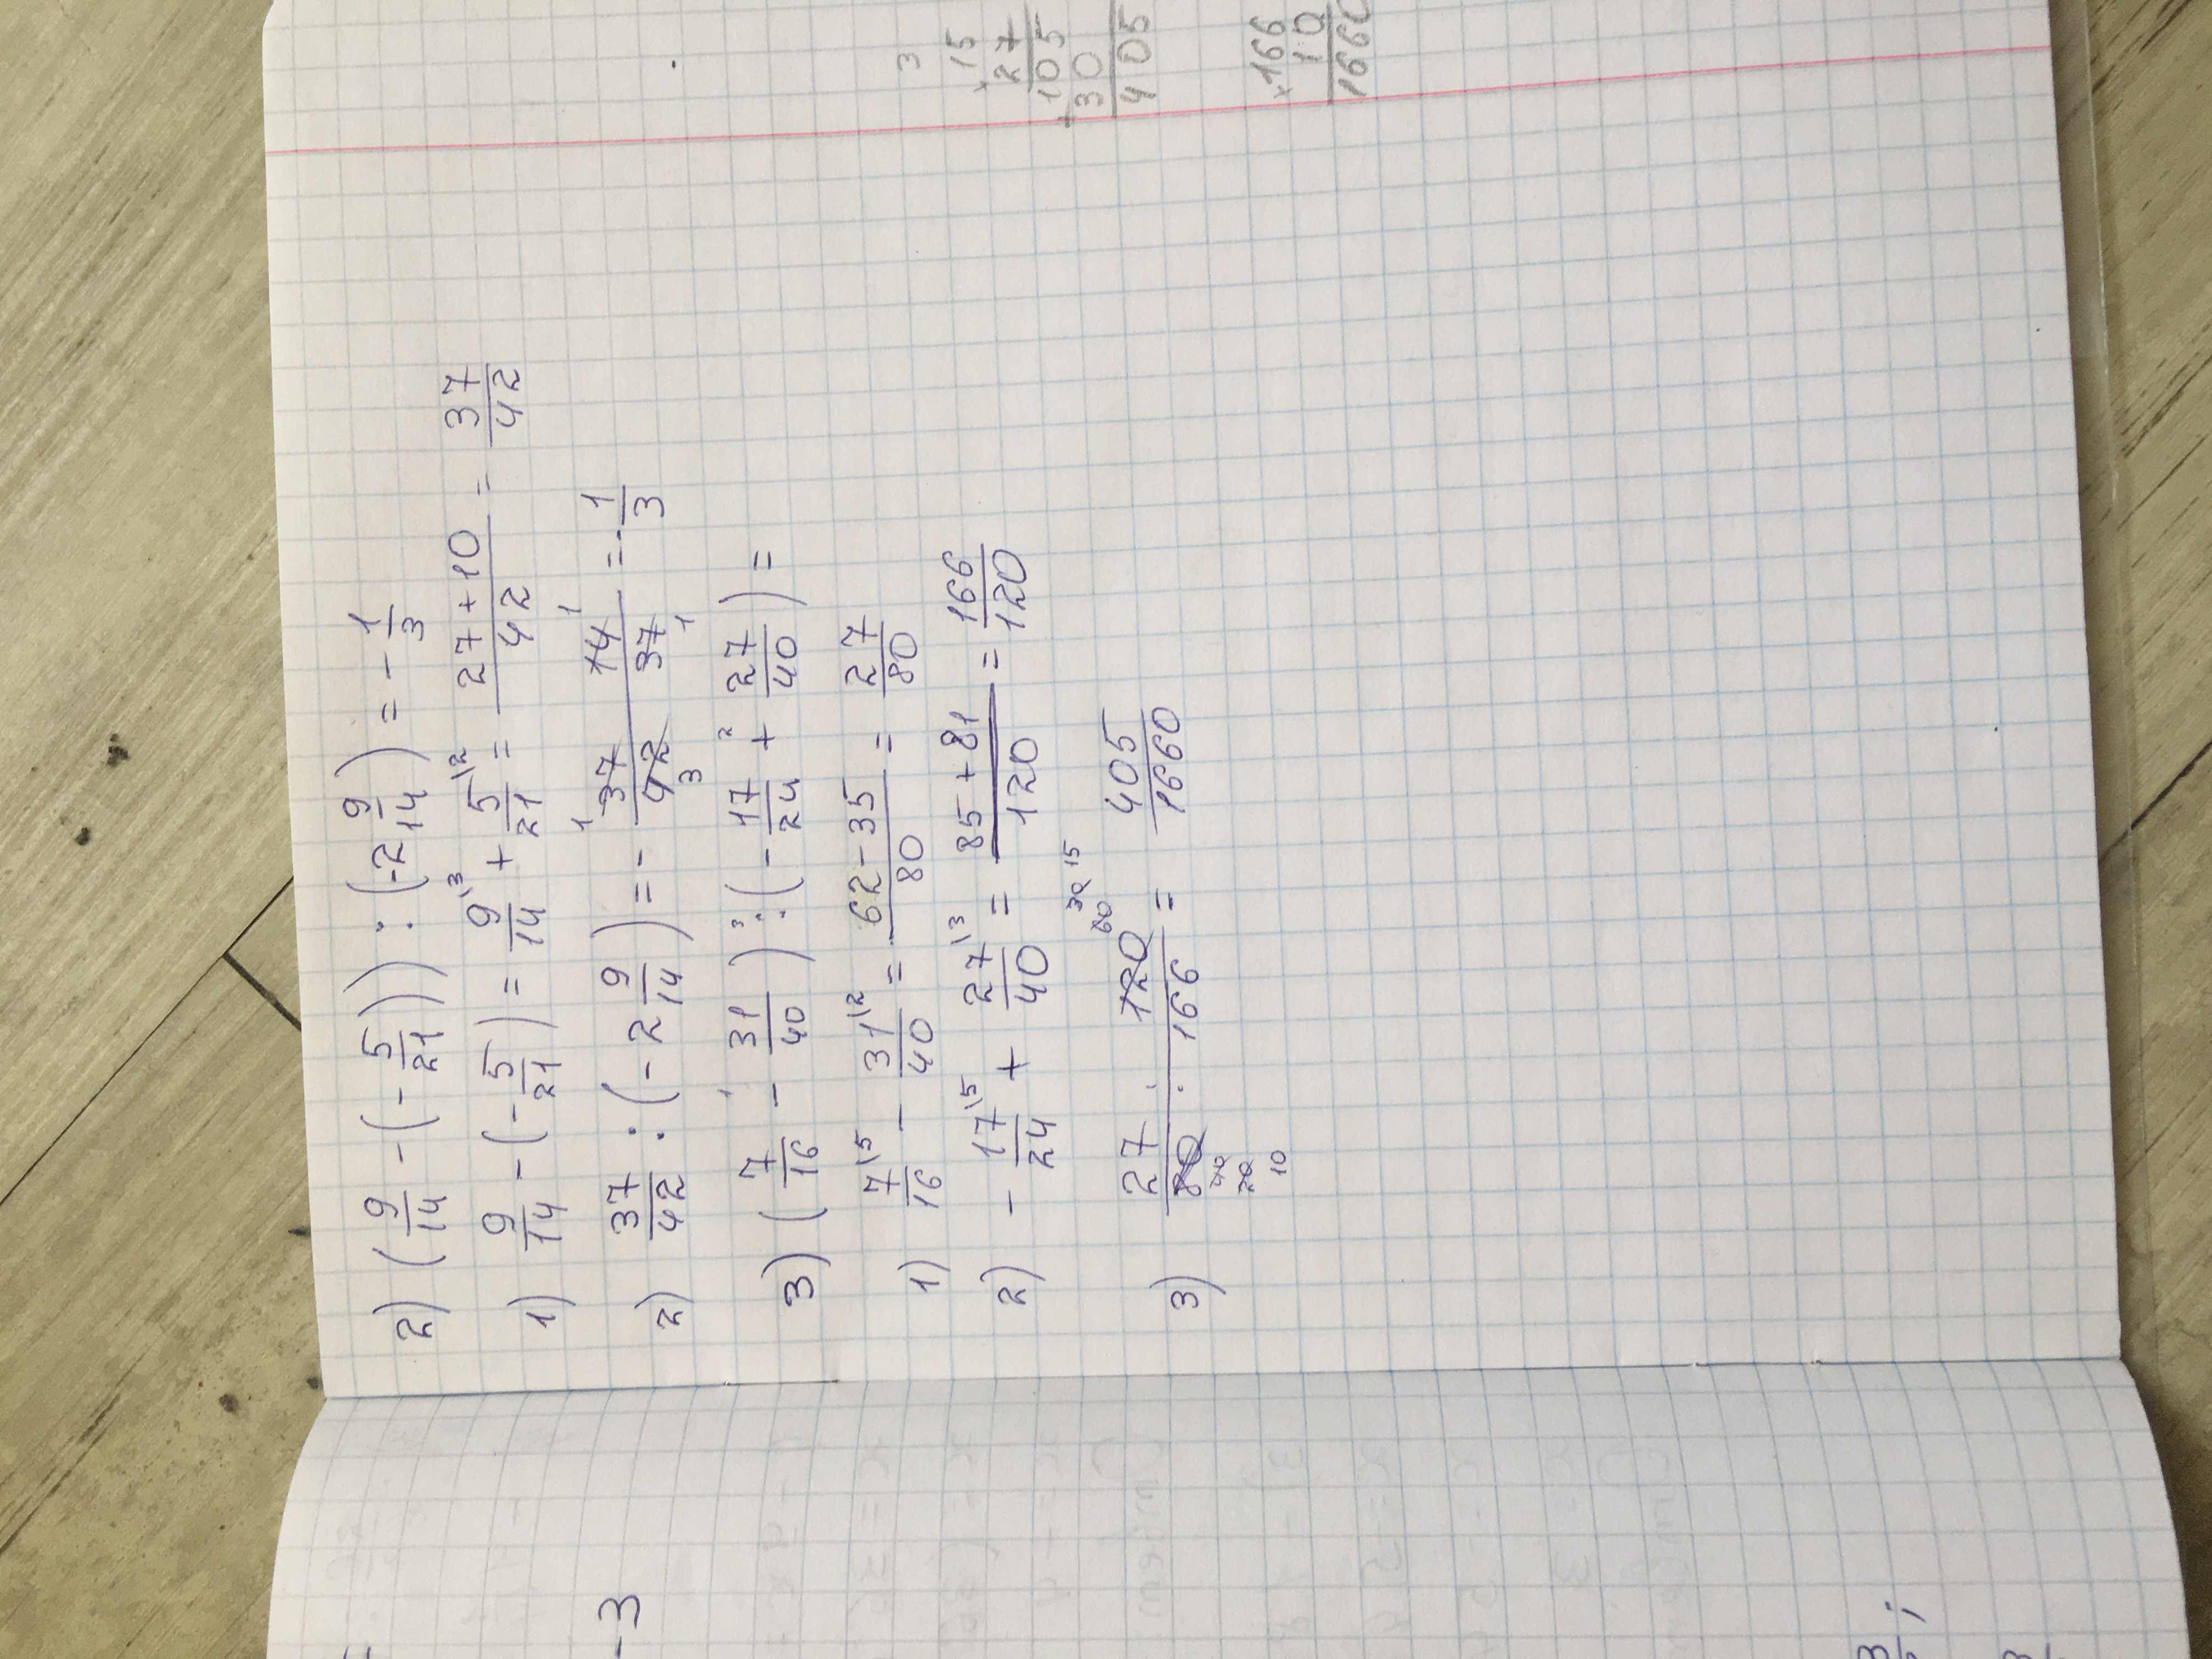 2) (9/14 - (- 5/21)) : (-2 9/14) = - 1/3
1) 9/14 - (- 5/21) = 9\3/14 + 5\2/21 = 27+10/42 = 37/42
2) 37/42 : (-2 9/14) = - 37/42 14/37 = - 1/3
1 1
3 1
3) (7/16 - 31/40) : (- 17/24 + 27/40) =
1 3 2
1) 7\5/16 - 31\2/40 = 62-35/80 = 27/80
2) - 17\5/24 + 27\3/40 = 85+81/120 = 166/120
3) 27/80 : 120/166 = 405/1660
60 30 15
40
20
10
3
×15
27
105
+30
405
×166
10
1660
-3